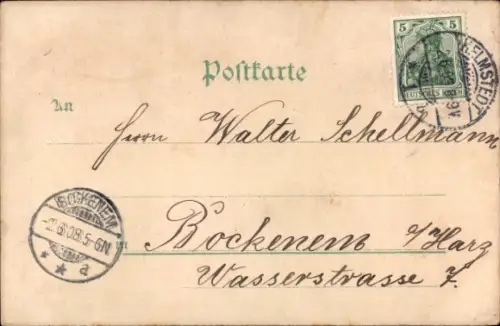 5
DEUTSCHES REICH
HELMSTEDT
Postkarte
An
Herrn Walter Schellmann
BOCKENEM
2.6.08.5-6N
* * a
in
Bockenem a/Harz
Wasserstrasse 7.